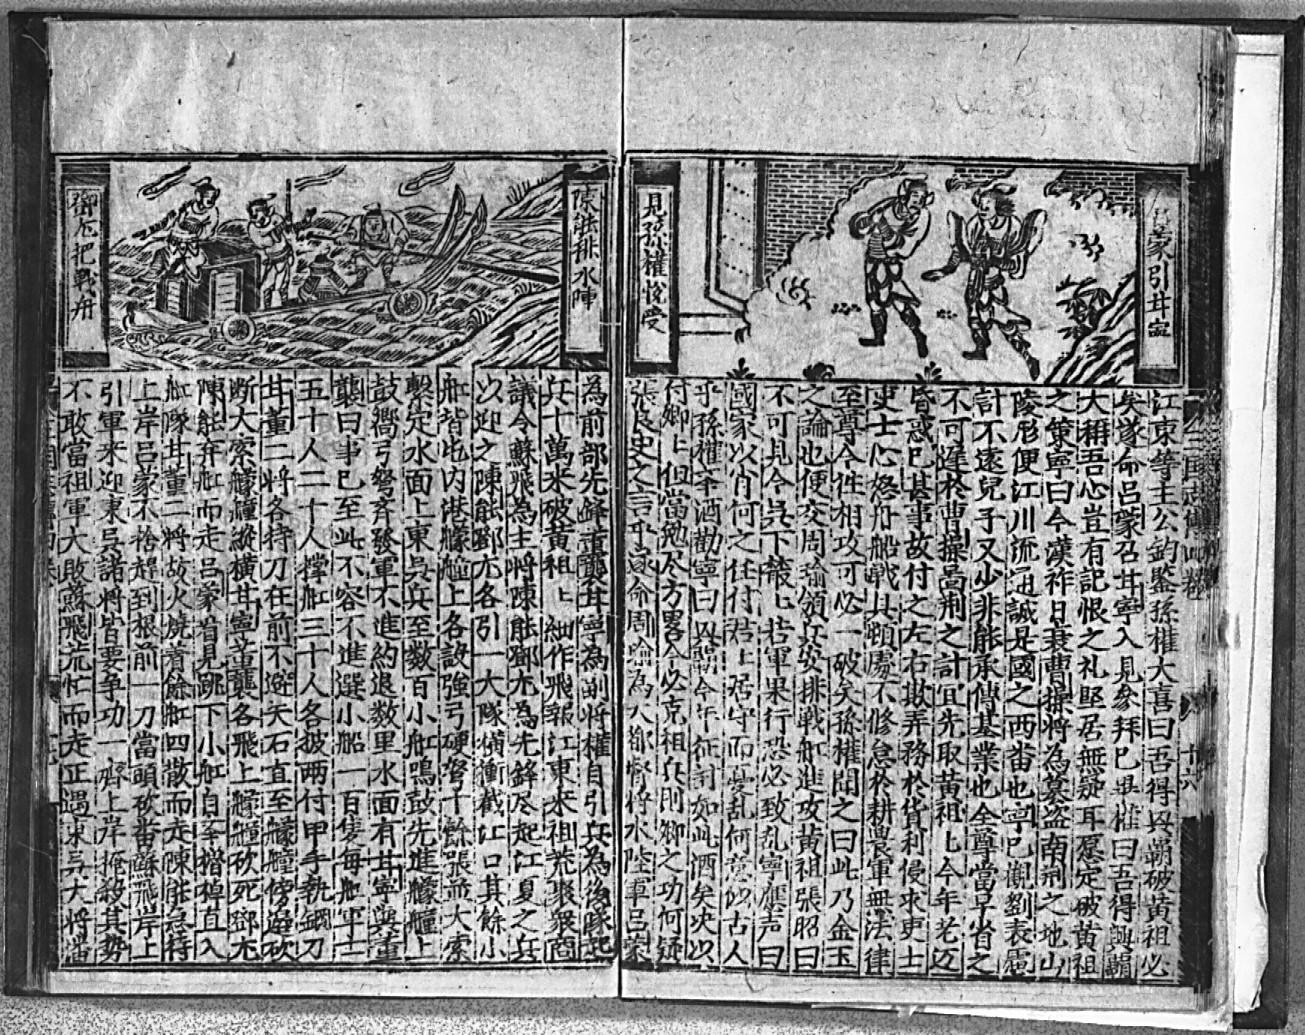 呂蒙引甘寧
見孫權悅受
江東等主公鈞鑒孫權大喜曰吾得興霸破黃祖必
矣遂命呂蒙召甘寧入見參拜已畢權曰吾得興霸
大稱吾心豈有記恨之礼堅居無疑耳愿定破黃祖
之策寧曰今漢祚日衰曹操將為篡盗南荊之地山
陵形便江川流通誠是國之西畨也寧已觀劉表慮
計不遠兒子又少非能承傳基業也全尊當早省之
不可遲於曹操啚荊之計宜先取黃祖上今年老迈
昏惑已甚事故付之左右欺弄務於貨利侵求吏士
吏士心怒舟船戰具頓廢不修怠於耕農軍無法律
至尊今徃相攻可必一破矣孫權聞之曰此乃金玉
之論也便交周瑜領兵安排戰舡進攻黃祖張昭曰
不可見今吳下業上若軍果行恐必致乱寧應声曰
國家以肖何之任付君上居守而憂乱何意似古人
乎孫權幸酒勸寧曰興霸今年征討如此酒矣决以
付卿上但當勉尽方畧令必克祖兵則卿之功何疑
張良史之言乎遂命周瑜為大都督將水陸軍呂蒙
三國志傳四卷
十六
陳能排水陣
鄧尢把戰舟
為前部先鋒董襲甘寧為副將權自引兵為後隊起
兵十萬來破黃祖上細作飛報江東來祖荒聚衆商
議令蘇飛為主將陳能鄧尢為先鋒尽起江夏之兵
以迎之陳能鄧尢各引一大隊横衝截江口其餘小
舡皆屯内港艨艟上各設強弓硬弩十餘張並大索
繫定水面上東吳兵至数百小舡鳴鼓先進艨艟上
鼓嚮弓弩斉發軍不進約退数里水面有甘寧與董
襲曰事已至此不容不進選小船一百隻每舡軍士
五十人二十人撑舡三十人各披两付甲手執鋼刀
甘董二将各持刀在前不避矢石直至艨艟傍邉砍
断大索艨艟縱横甘寧董襲各飛上艨艟砍死鄧尢
陳能弃舡而走呂蒙看見跳下小舡自至櫓棹直入
舡隊甘董二将放火燒着餘舡四散而走陳能急待
上岸呂蒙不捨趕到根前一刀當頭砍畨蘇飛岸上
引軍来迎東吳諸将皆要争功一齊上岸掩殺其勢
不敢當祖軍大敗蘇飛荒忙而走正遇東吳大将潘